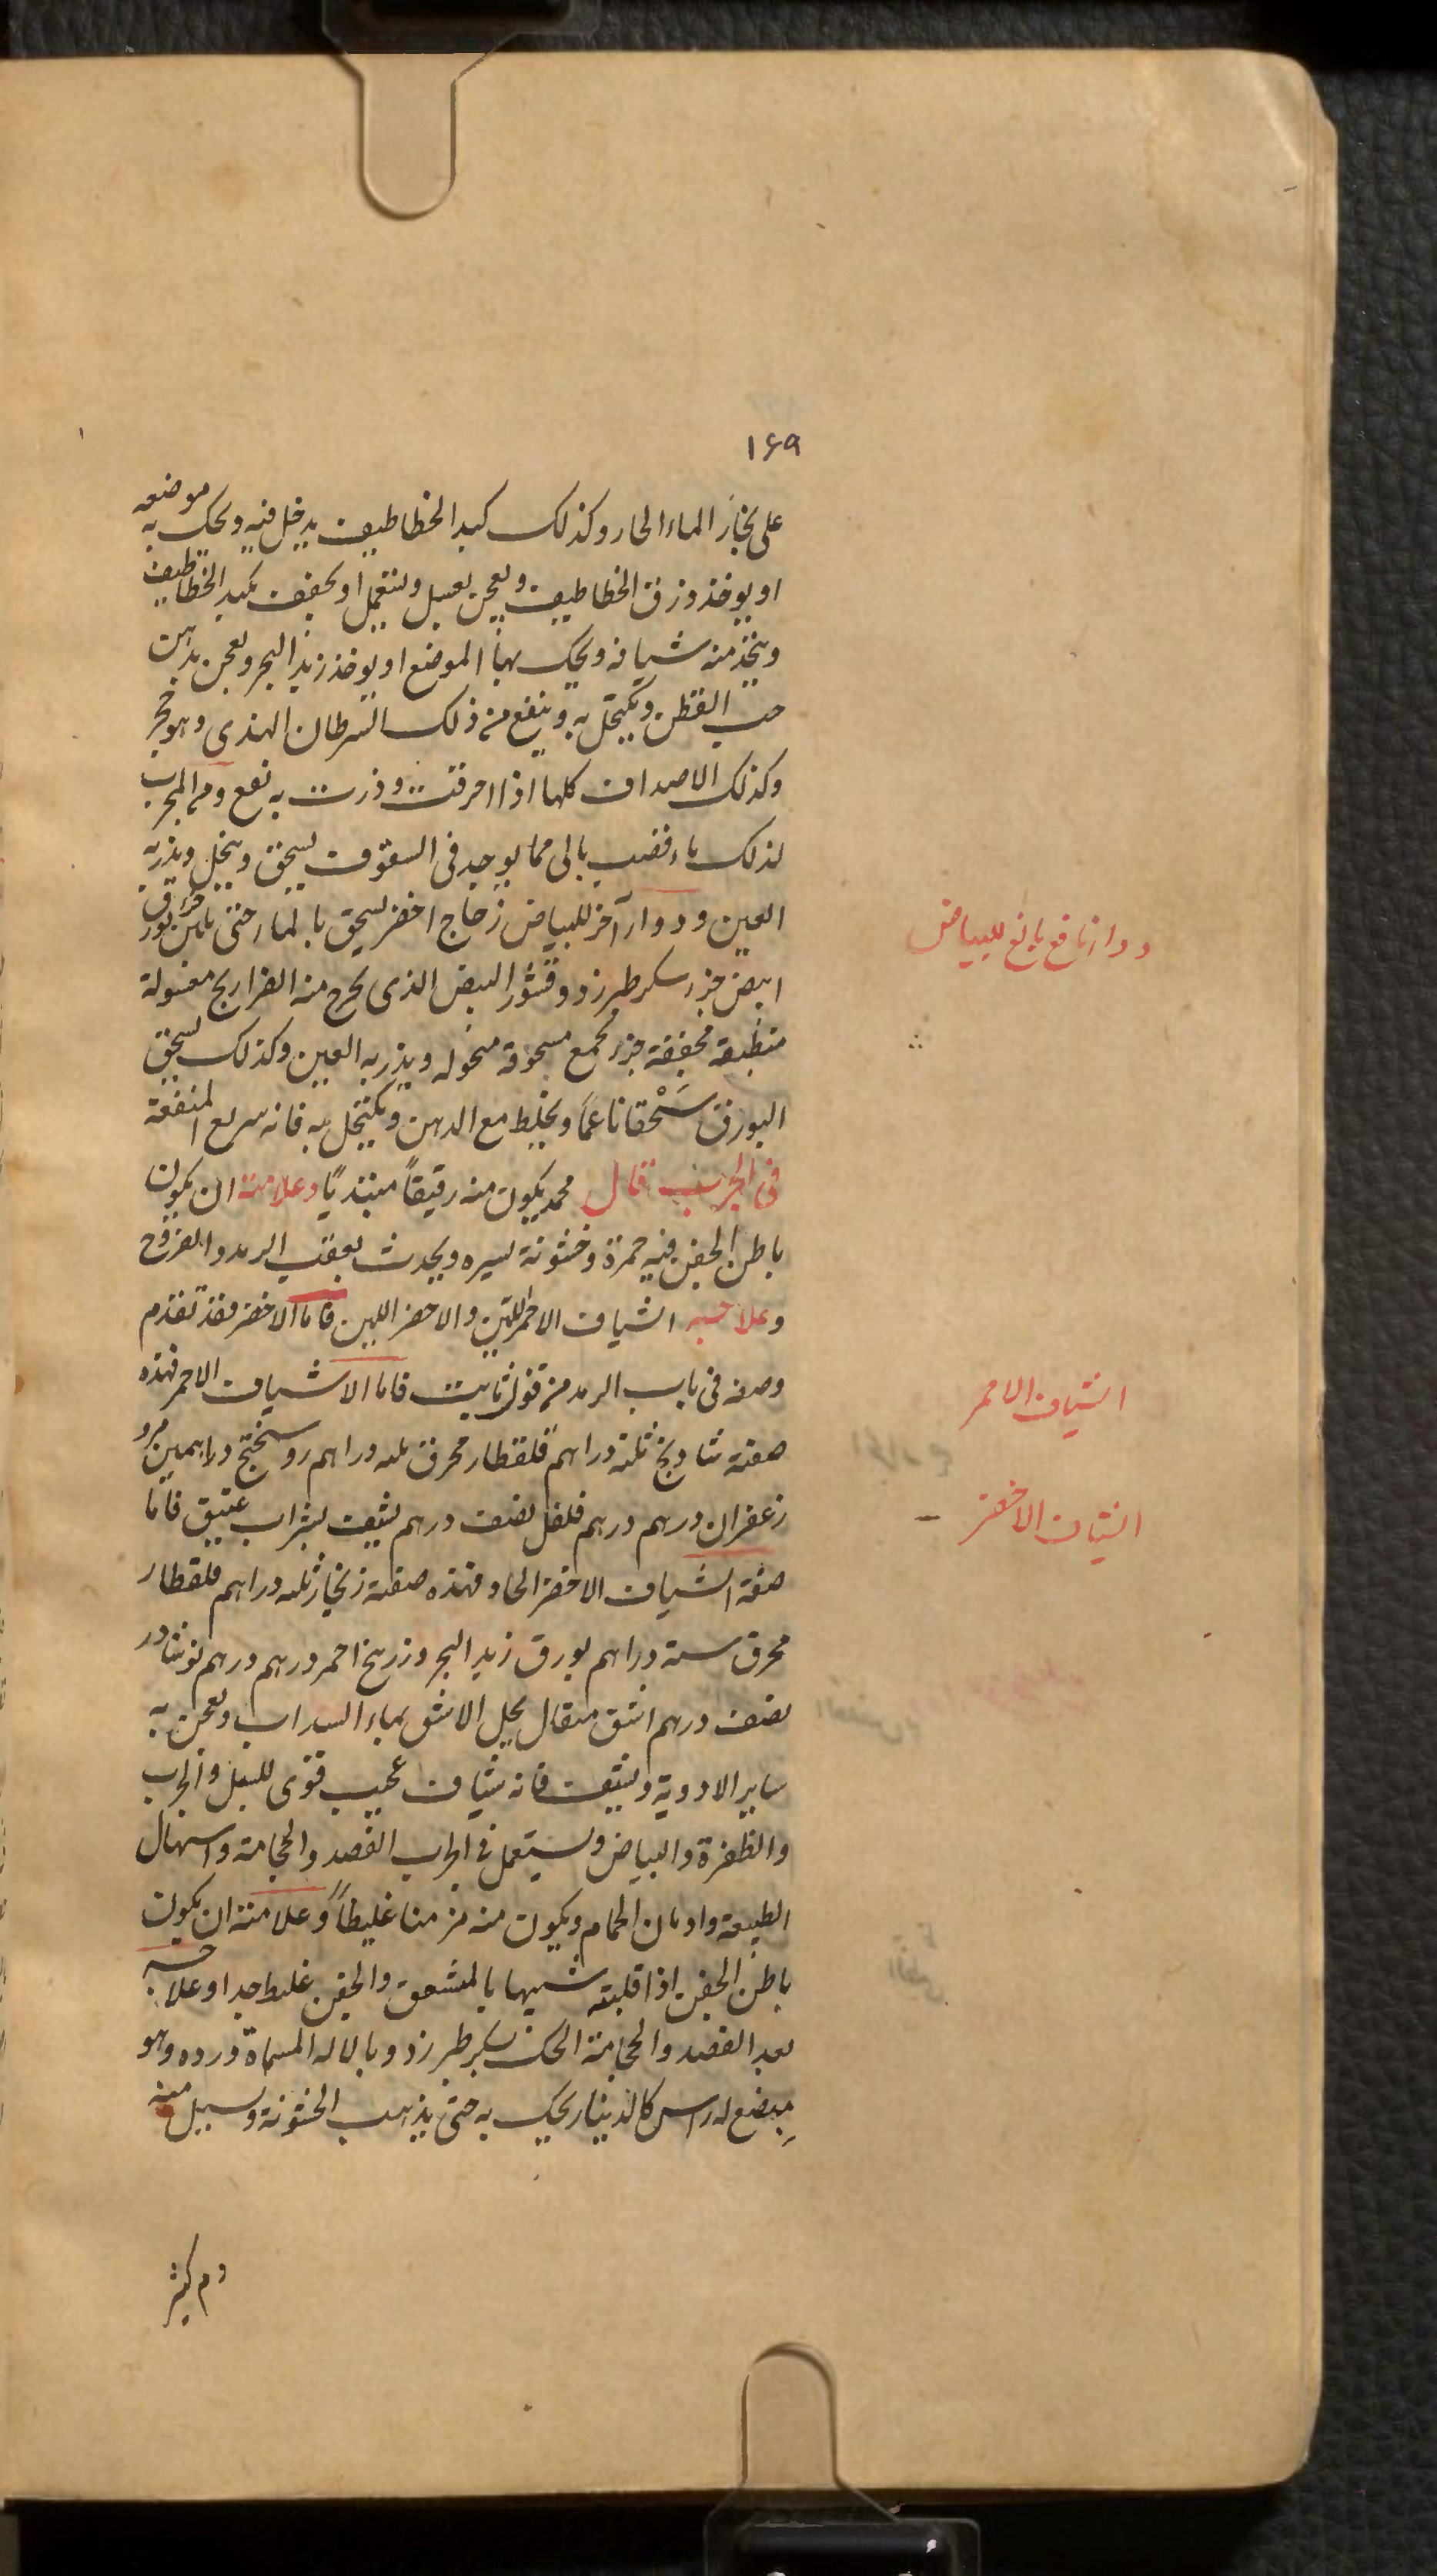 ١٦٩
على بخار الماء الحار وكذلك كبد الخطاطيف يدخل فيه ويحك به موضعه
او يوخذ ذرق الخطاطيف ويعجن بعسل ويستعمل او يجفف كبد الخطاطيف
ويتخذ منه شيافه ويحك بها الموضع او يوخذ زبد البحر ويعجن بدهن
حب القطن ويكتحل به وينفع من ذلك السرطان الهندى وهو حجر
وكذلك الاصداف كلها اذا احرقت وذرت به نفع ومن المجرب
لذلك قصب بالى مما يوجد فى السقوف يسحق وينخل ويذر به
العين ودواء آخر للبياض زجاج اخضر يسحق بالماء حتى يلين جزء بورق
ابيض جزء سكر طبرزد وقشور البيض الذى يخرج منه الفراريج مغسولة
منظيفة مجففة جزء تجمع مسحوقة منخوله ويذر به العين وكذلك يسحق
البورق سَحْقا ناعمًا ويخلط مع الدهن ويكتحل به فانه سريع المنفعة
فى الجرب قال محمد يكون منه رقيقاً مبتديًا وعلامته ان يكون
باطن الجفن فيه حمرة وخشونة يسيره ويحدث بعقب الرمد والقروح
وعلاجه الشياف الاحمر اللين والاخضر اللين فاما الاخضر فقد تقدم
وصفه فى باب الرمد من قول ثابت فاما الاشياف الاحمر فهذه
صفته شادنج ثلثة دراهم قلقطار محرق ثلثه دراهم روسختج دراهمين مرو
زعفران درهم درهم فلفل نصف درهم يشيف بشراب عتيق فاما
صفة الشياف الاخضر الحاد فهذه صفته زنجار ثلثه دراهم قلقطار
محرق ستة دراهم بورق زبد البحر وزرنيخ احمر درهم درهم نوشادر
نصف درهم اشق مثقال يحل الاشق بماء السداب ويعجن به
ساير الادوية ويشيف فانه شياف عجيب قوى للسبل والجرب
والظفرة والبياض ويستعمل فى الجرب الفصد والحجامة واسهال
الطبيعة وادمان الحمام ويكون منه مزمنا غليظاً وعلامته ان يكون
باطن الجفن اذا قلبته شبيها بالمشقق والجفن غليظ جدا وعلاجه
بعد الفصد والحجامة الحك بسكر طبرزد وبالاله المسماة ورده وهو
مبضع له راس كالدينار يحك به حتى يذهب الخشونة ويسيل منه
دم كثير
دواء نافع بالغ للبياض
الشياف الاحمر
الشياف الاخضر